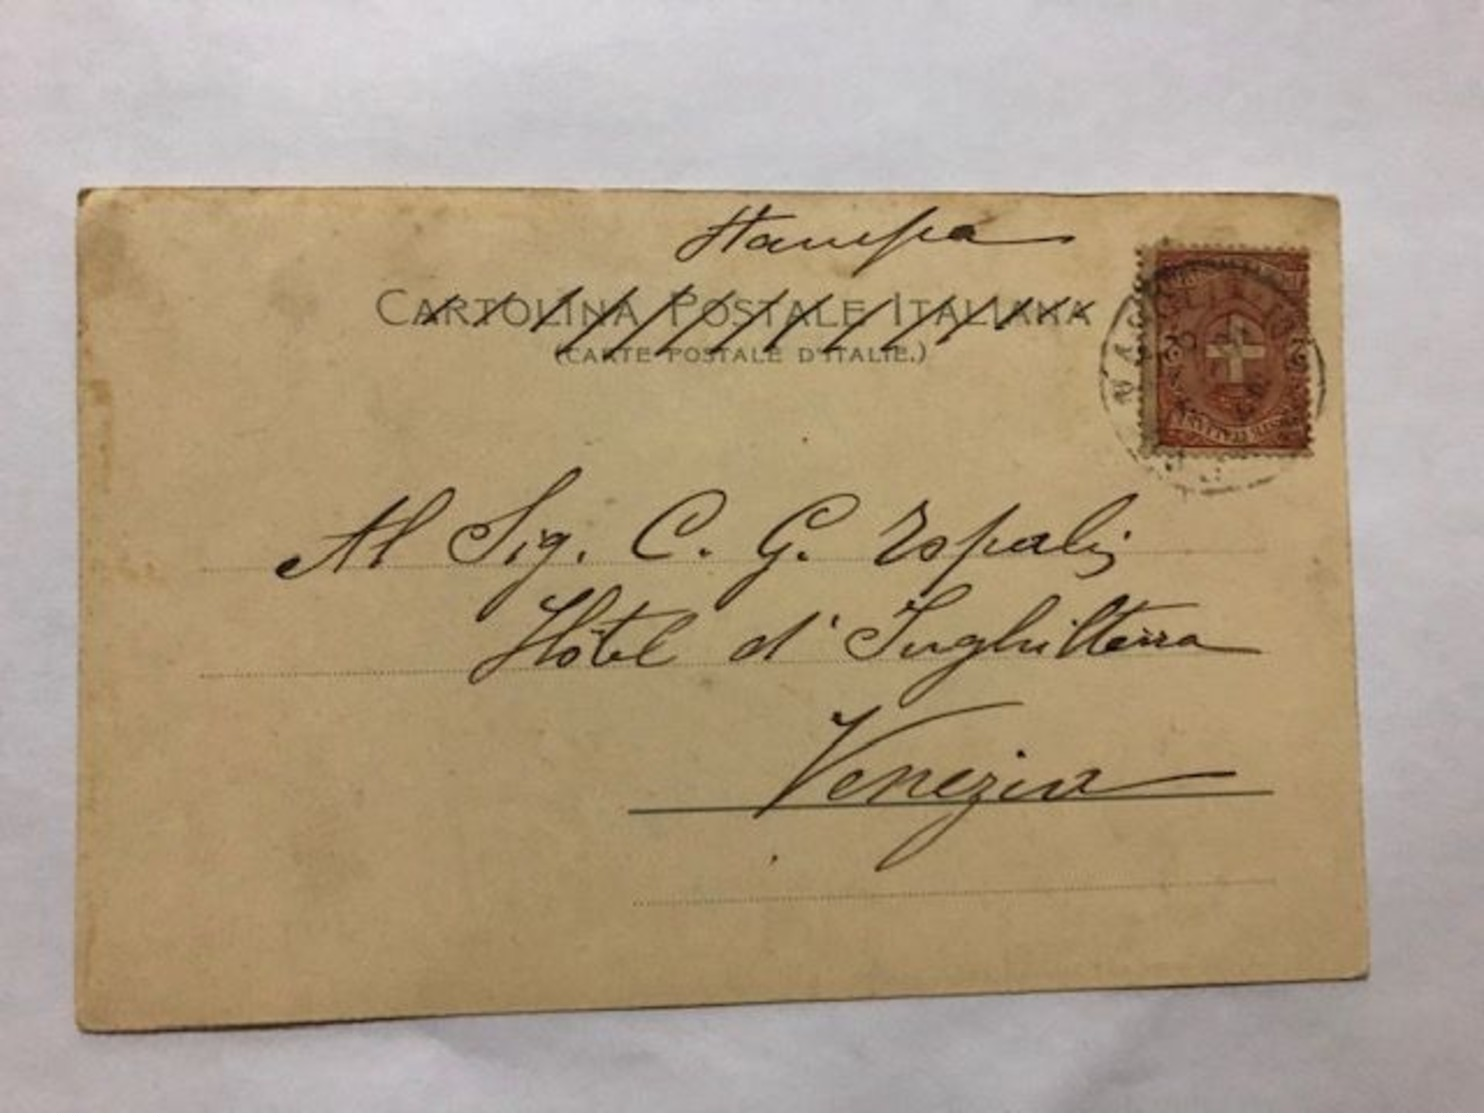 Stampa
CARTOLINA POSTALE ITALIANA
(CARTE POSTALE D'ITALIE.)
Al Sig. C. G.
Hôtel d'Inghilterra
Venezia